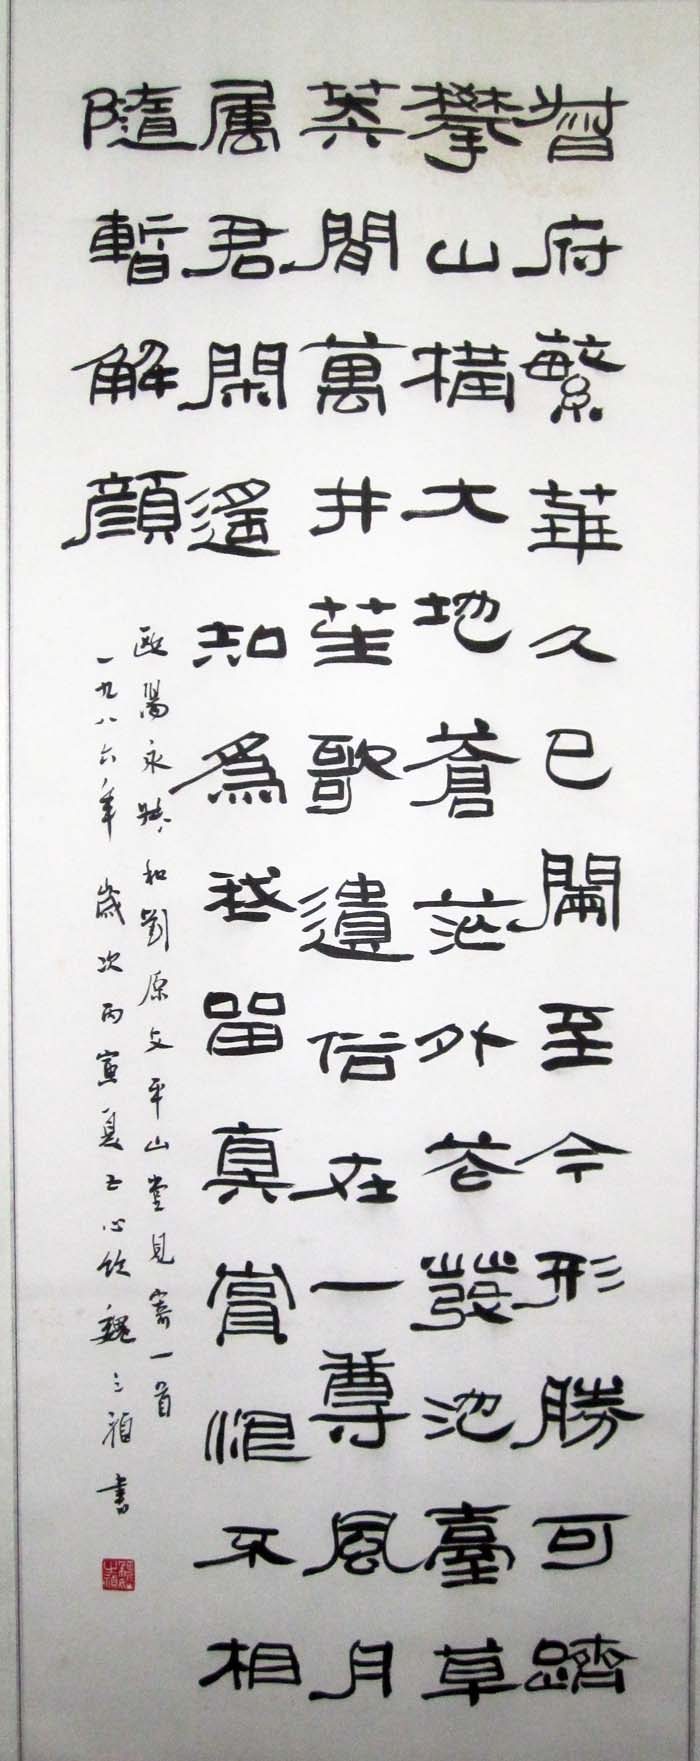 督府繁華久已闌至今形勝可躋
攀山橫大地蒼茫外花發池臺草
莽間萬井笙歌遺俗在一尊風月
属君閑遙知為我留真賞恨不相
隨暫解顏
歐陽永叔和劉原父平山堂見寄一首
一九八六年歲次丙寅夏五 魏之禎書